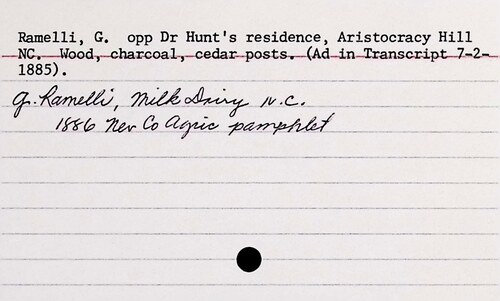 Ramelli, G.  opp Dr Hunt's residence, Aristocracy Hill
NC.  Wood, charcoal, cedar posts. (Ad in Transcript 7-2-
1885).
G. Ramelli, Milk Dairy N.C.
1886 Nev Co Agric pamphlet